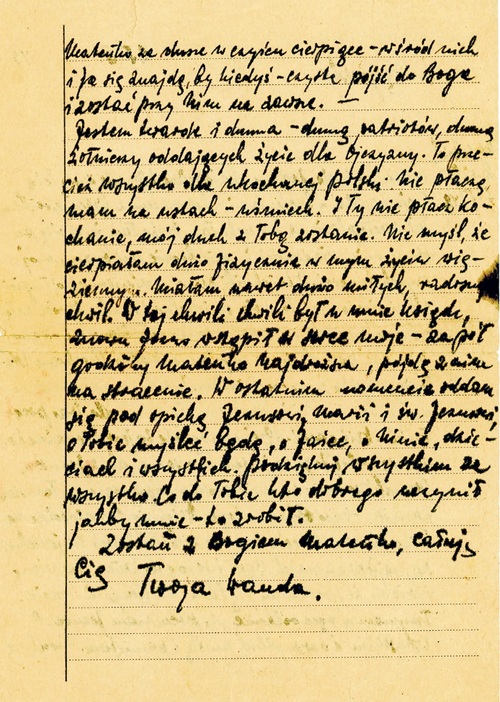 Mateńko za dusze w czyśćcu cierpiące - wśród nich
i ja się znajdę, by kiedyś - czysta pójść do Boga
i zostać przy Nim na zawsze. —
Jestem twarda i dumna - dumą patriotów, dumą
żołnierzy oddających życie dla Ojczyzny. To prze-
cież wszystko dla ukochanej Polski. Nie płaczę,
mam na ustach - uśmiech. I Ty nie płacz ko-
chanie, mój duch z Tobą zostanie. Nie myśl, że
cierpiałam dużo fizycznie w mym życiu wię-
ziennym. Miałam nawet dużo miłych, radosnych
chwil. W tej chwili chwili był u mnie ksiądz,
znowu Jezus wstąpił w serce moje - za pół
godziny Mateńko najdroższa, pójdę z nim
na stracenie. W ostatnim momencie oddam
się pod opiekę Jezusowi, Marii i św. Jezusowi,
o Tobie myśleć będę, o , o Ninie, dzie-
ciach i wszystkich. Podziękuj wszystkim za
wszystko. Co do Tobie kto dobrego uczynił
jakby mnie - to zrobił.
Zostań z Bogiem Mateńko, całuję
Cię
Twoja Wanda.